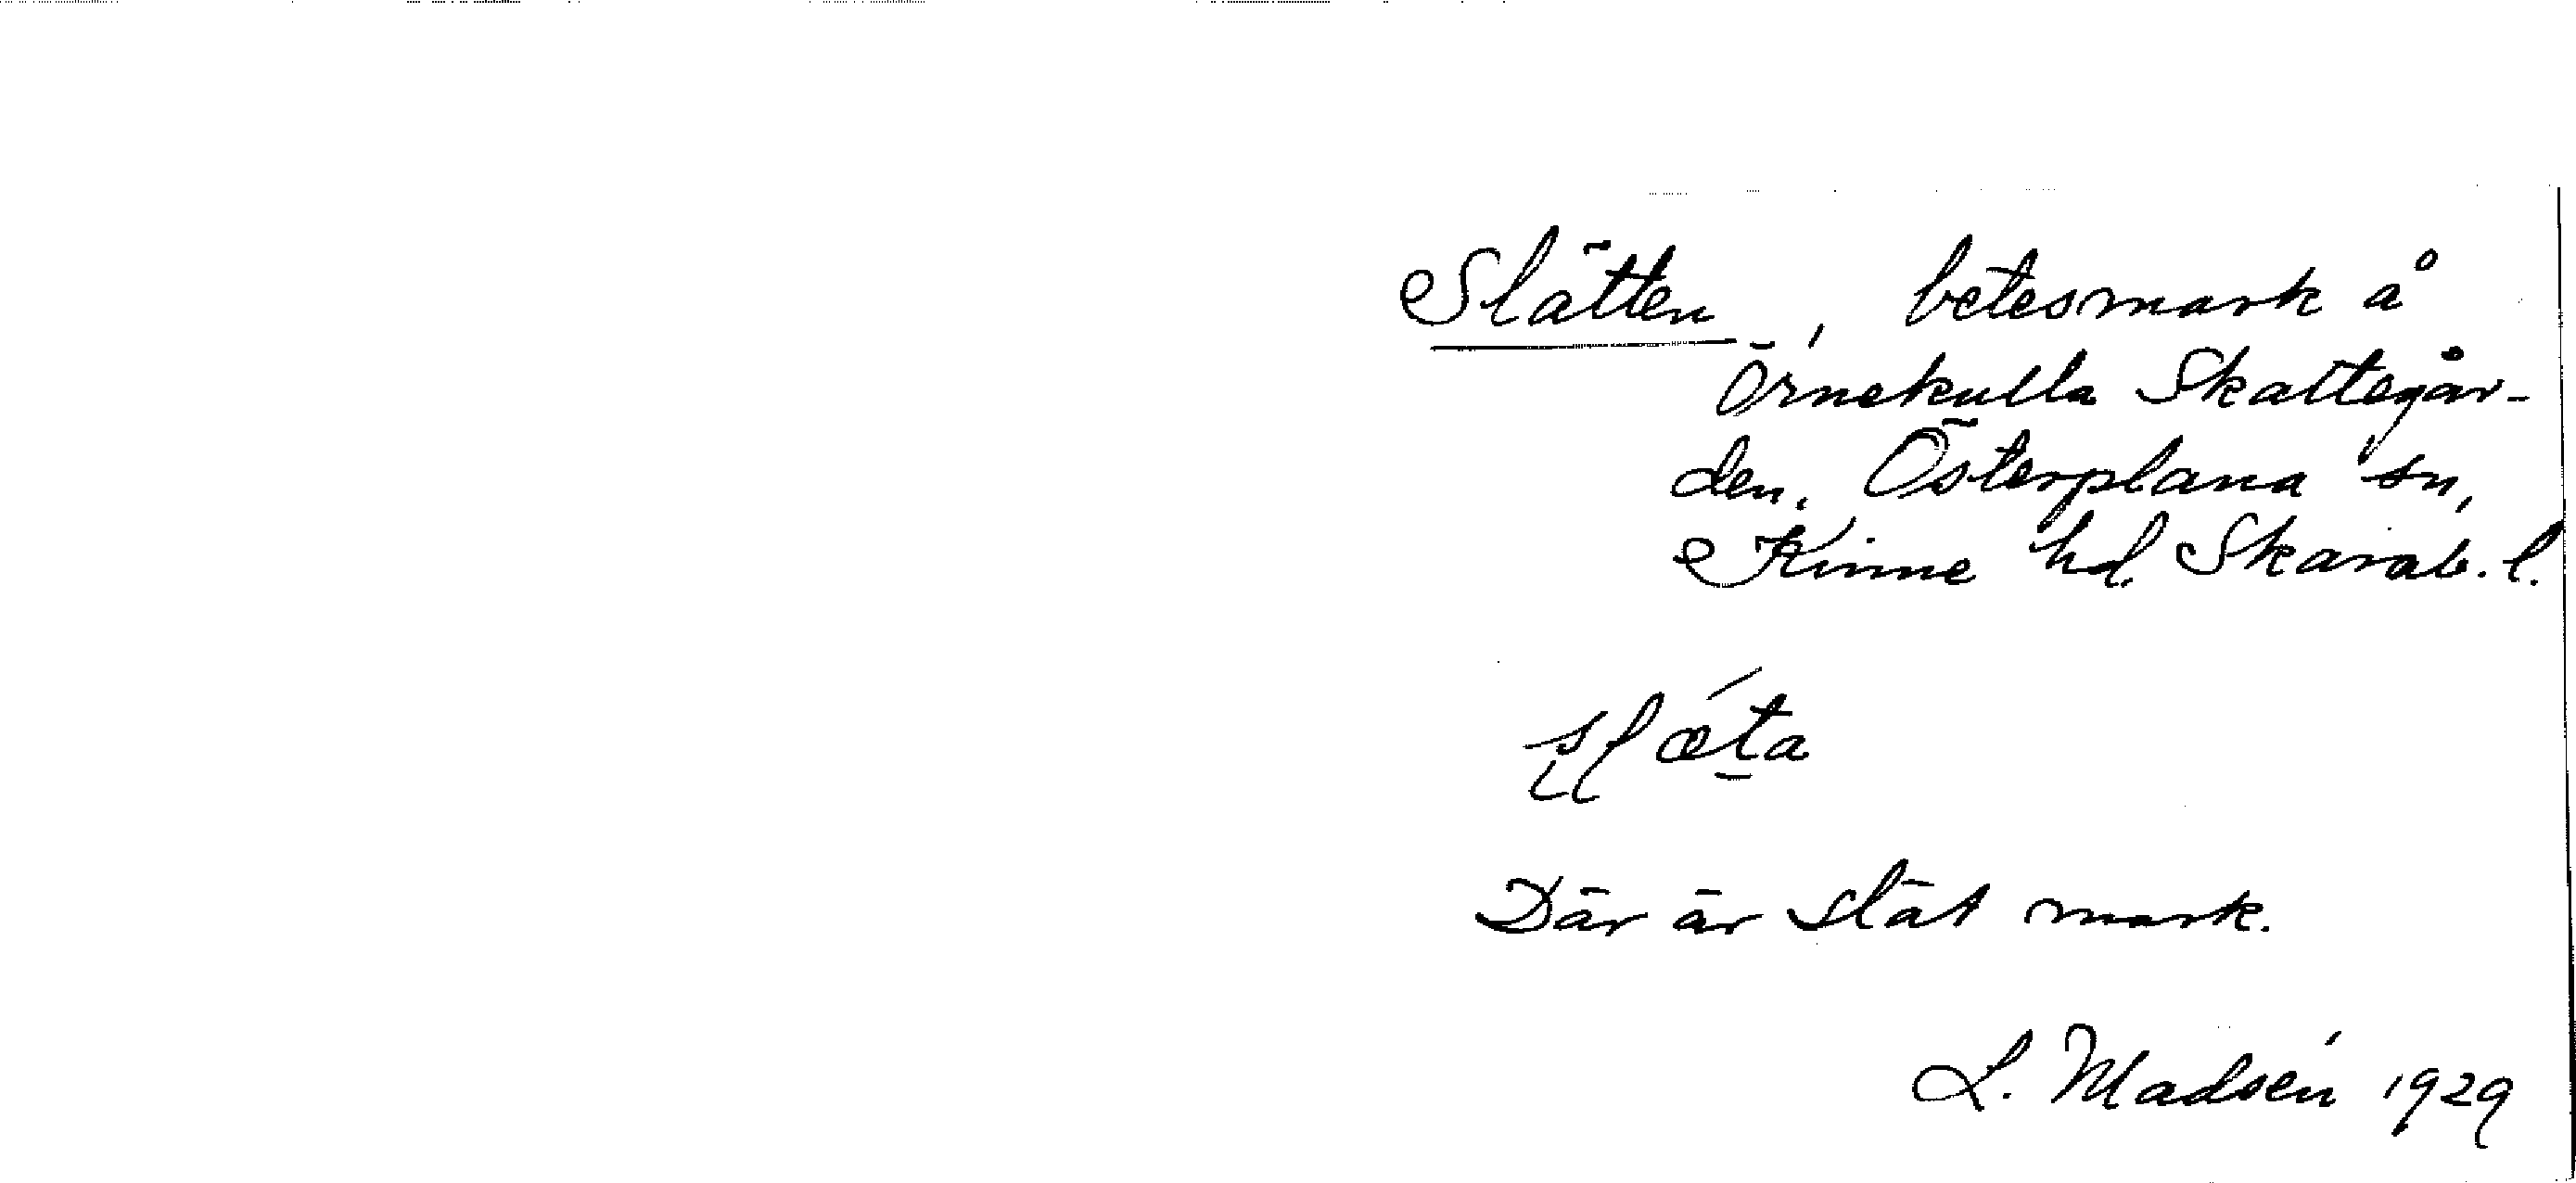 Slätten, betesmark å
Örnekulla Skattegår-
den, Österplana sn,
Kinne hd. Skarab. l.
slǽta
Där är slät mark.
L. Madsén 1929